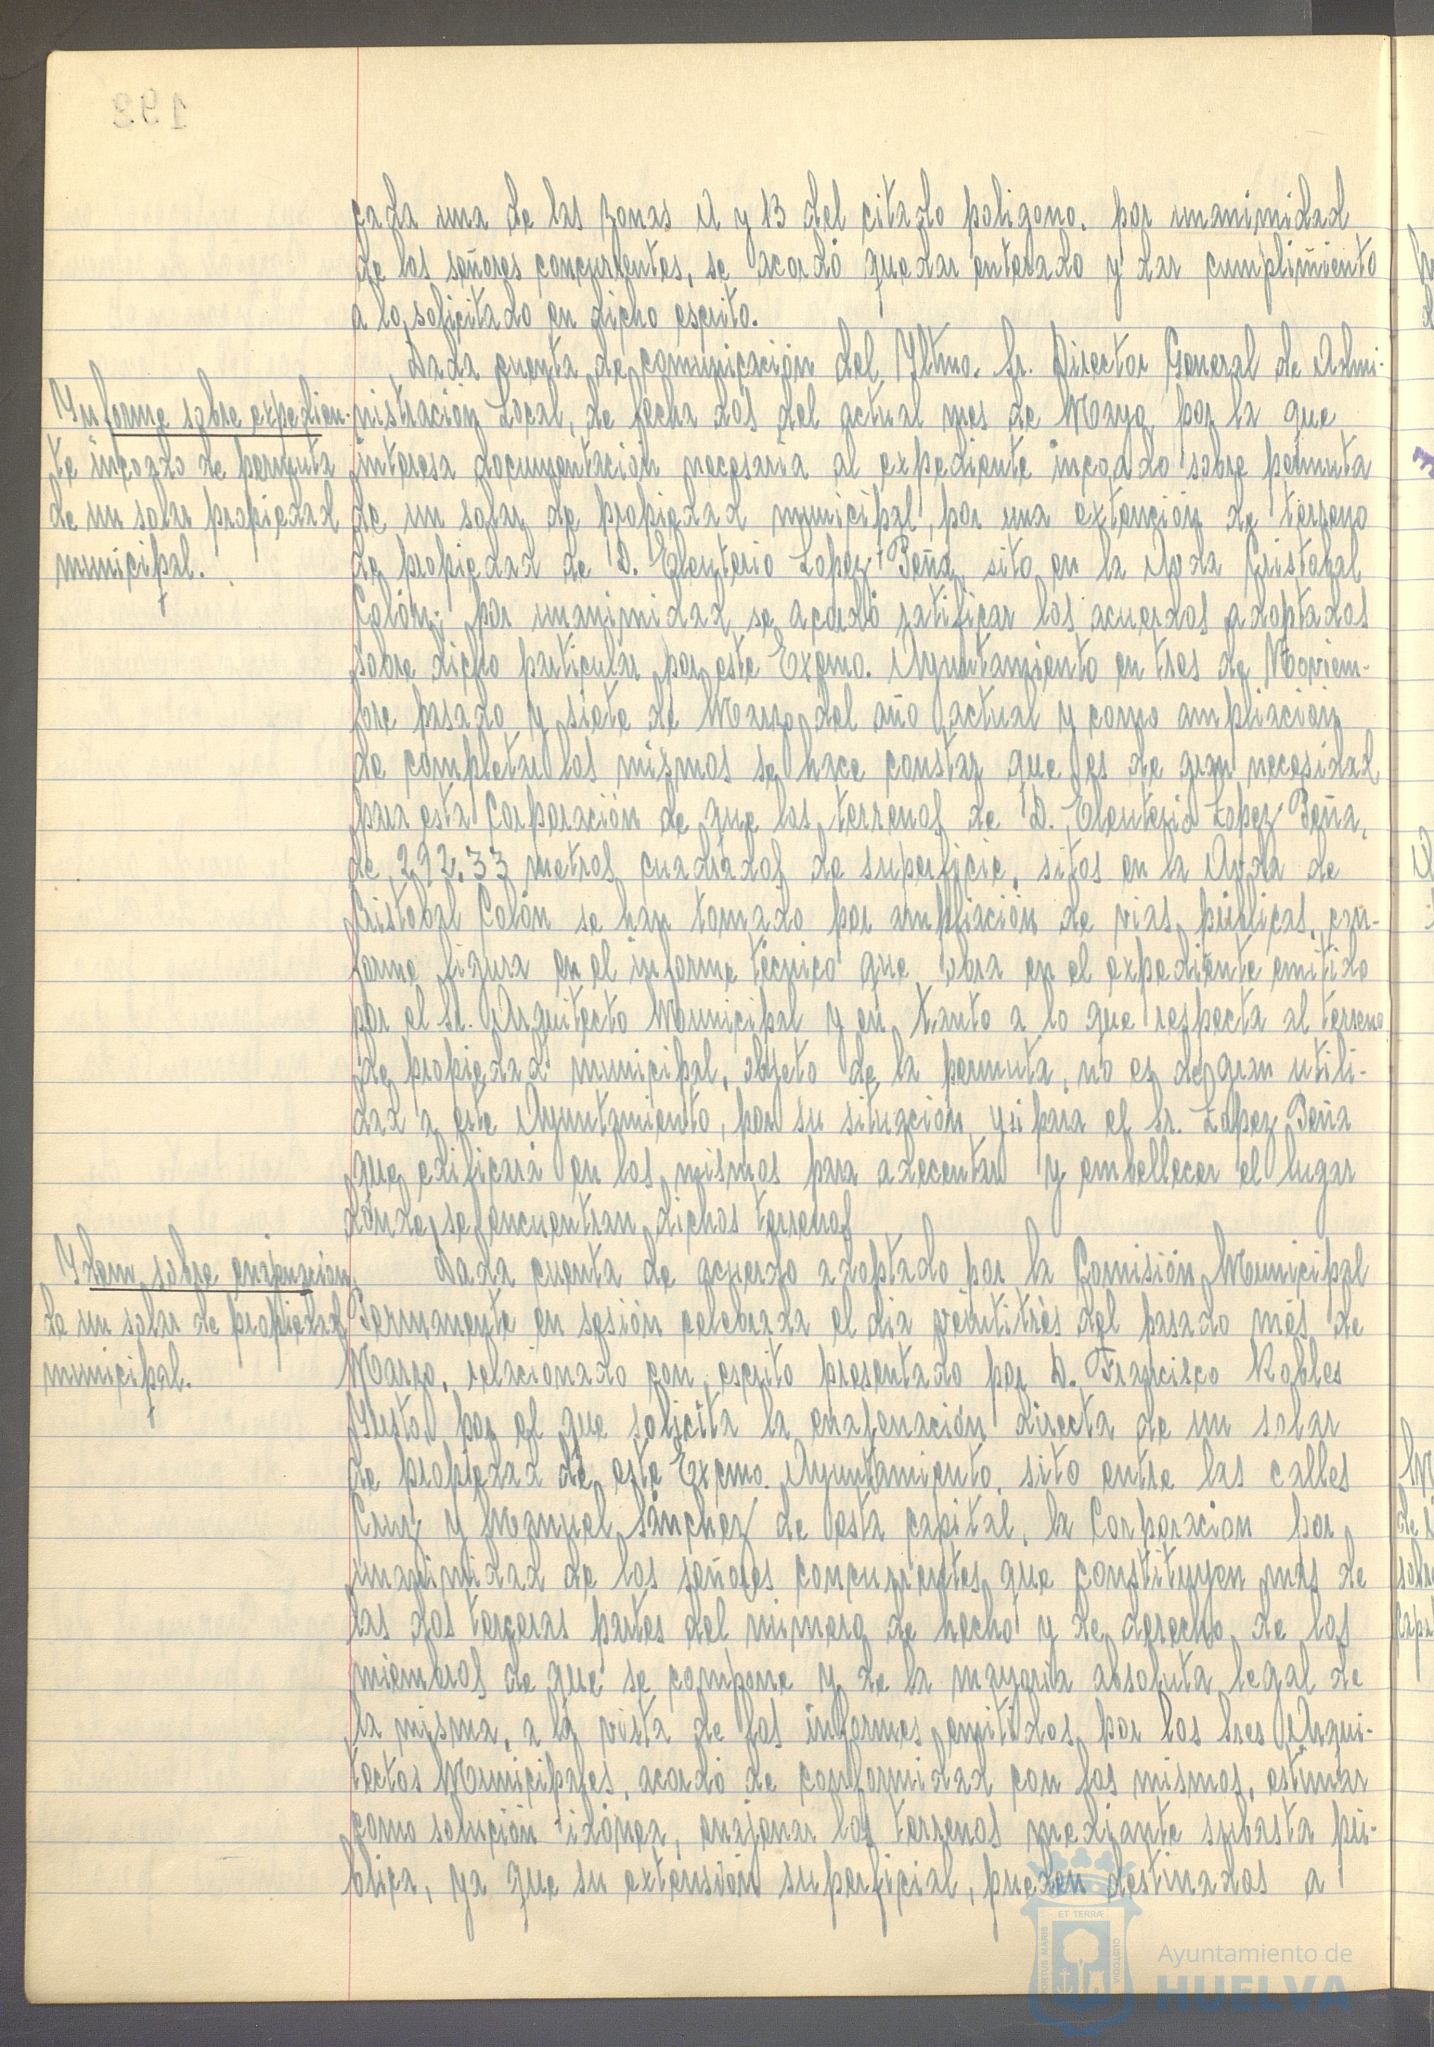 cada una de las zonas A y B del citado poligono. por unanimidad
de los señores concurrentes, se acordó quedar enterado y dar cumplimiento
a lo solicitado en dicho escrito.
Dada cuenta de comunicación del Yltmo. Sr. Director General de Admi-
Informe sobre expedien-
te incoado de permuta
de un solar propiedad
municipal.
nistración Local, de fecha dos del actual mes de Mayo, por la que
interesa documentación necesaria al expediente incoado sobre permuta
de un solar de propiedad municipal, por una extención de terreno
de propiedad de D. Eleuterio Lopez Peña, sito en la Avda Cristobal
Colón; por unanimidad se acordó ratificar los acuerdos adoptados
sobre dicho particular por este Excmo. Ayuntamiento en tres de Noviem-
bre pasado y siete de Marzo del año actual y como ampliación
de completar los mismos se hace constar que es de gran necesidad
para esta Corporación de que los terrenos de D. Eleuterio Lopez Peña,
de 292,33 metros cuadrados de superficie, sitos en la Avda de
Cristobal Colón se han tomado por ampliación de vias públicas, con-
forme figura en el informe técnico que obra en el expediente emitido
por el Sr. Arquitecto Municipal y en tanto a lo que respecta al terreno
de propiedad municipal, objeto de la permuta, no es de gran utili-
dad a este Ayuntamiento, por su situación y si para el Sr. Lopez Peña
que edificará en los mismos para adecentar y embellecer el lugar
donde se encuentran dichos terrenos
Ydem sobre enajenación
de un solar de propiedad
municipal.
Dada cuenta de acuerdo adoptado por la Comisión Municipal
Permanente en sesión celebrada el dia veintitrés del pasado mes de
Marzo, relacionado con escrito presentado por D. Francisco Robles
Justo, por el que solicita la enajenación directa de un solar
de propiedad de este Excmo. Ayuntamiento, sito entre las calles
Cruz y Manuel Sánchez de esta capital, la Corporacion por
unanimidad de los señores concurrentes que constituyen mas de
las dos terceras partes del número de hecho y de derecho de los
miembros de que se compone y de la mayoria absoluta legal de
la misma, a la vista de los informes emitidos por los Sres Arqui-
tectos Municipales, acordó de conformidad con los mismos, estimar
como solución idónea, enajenar los terrenos mediante subasta pú-
blica, ya que su extensión superficial, pueden destinados a
Ayuntamiento de
HUELVA